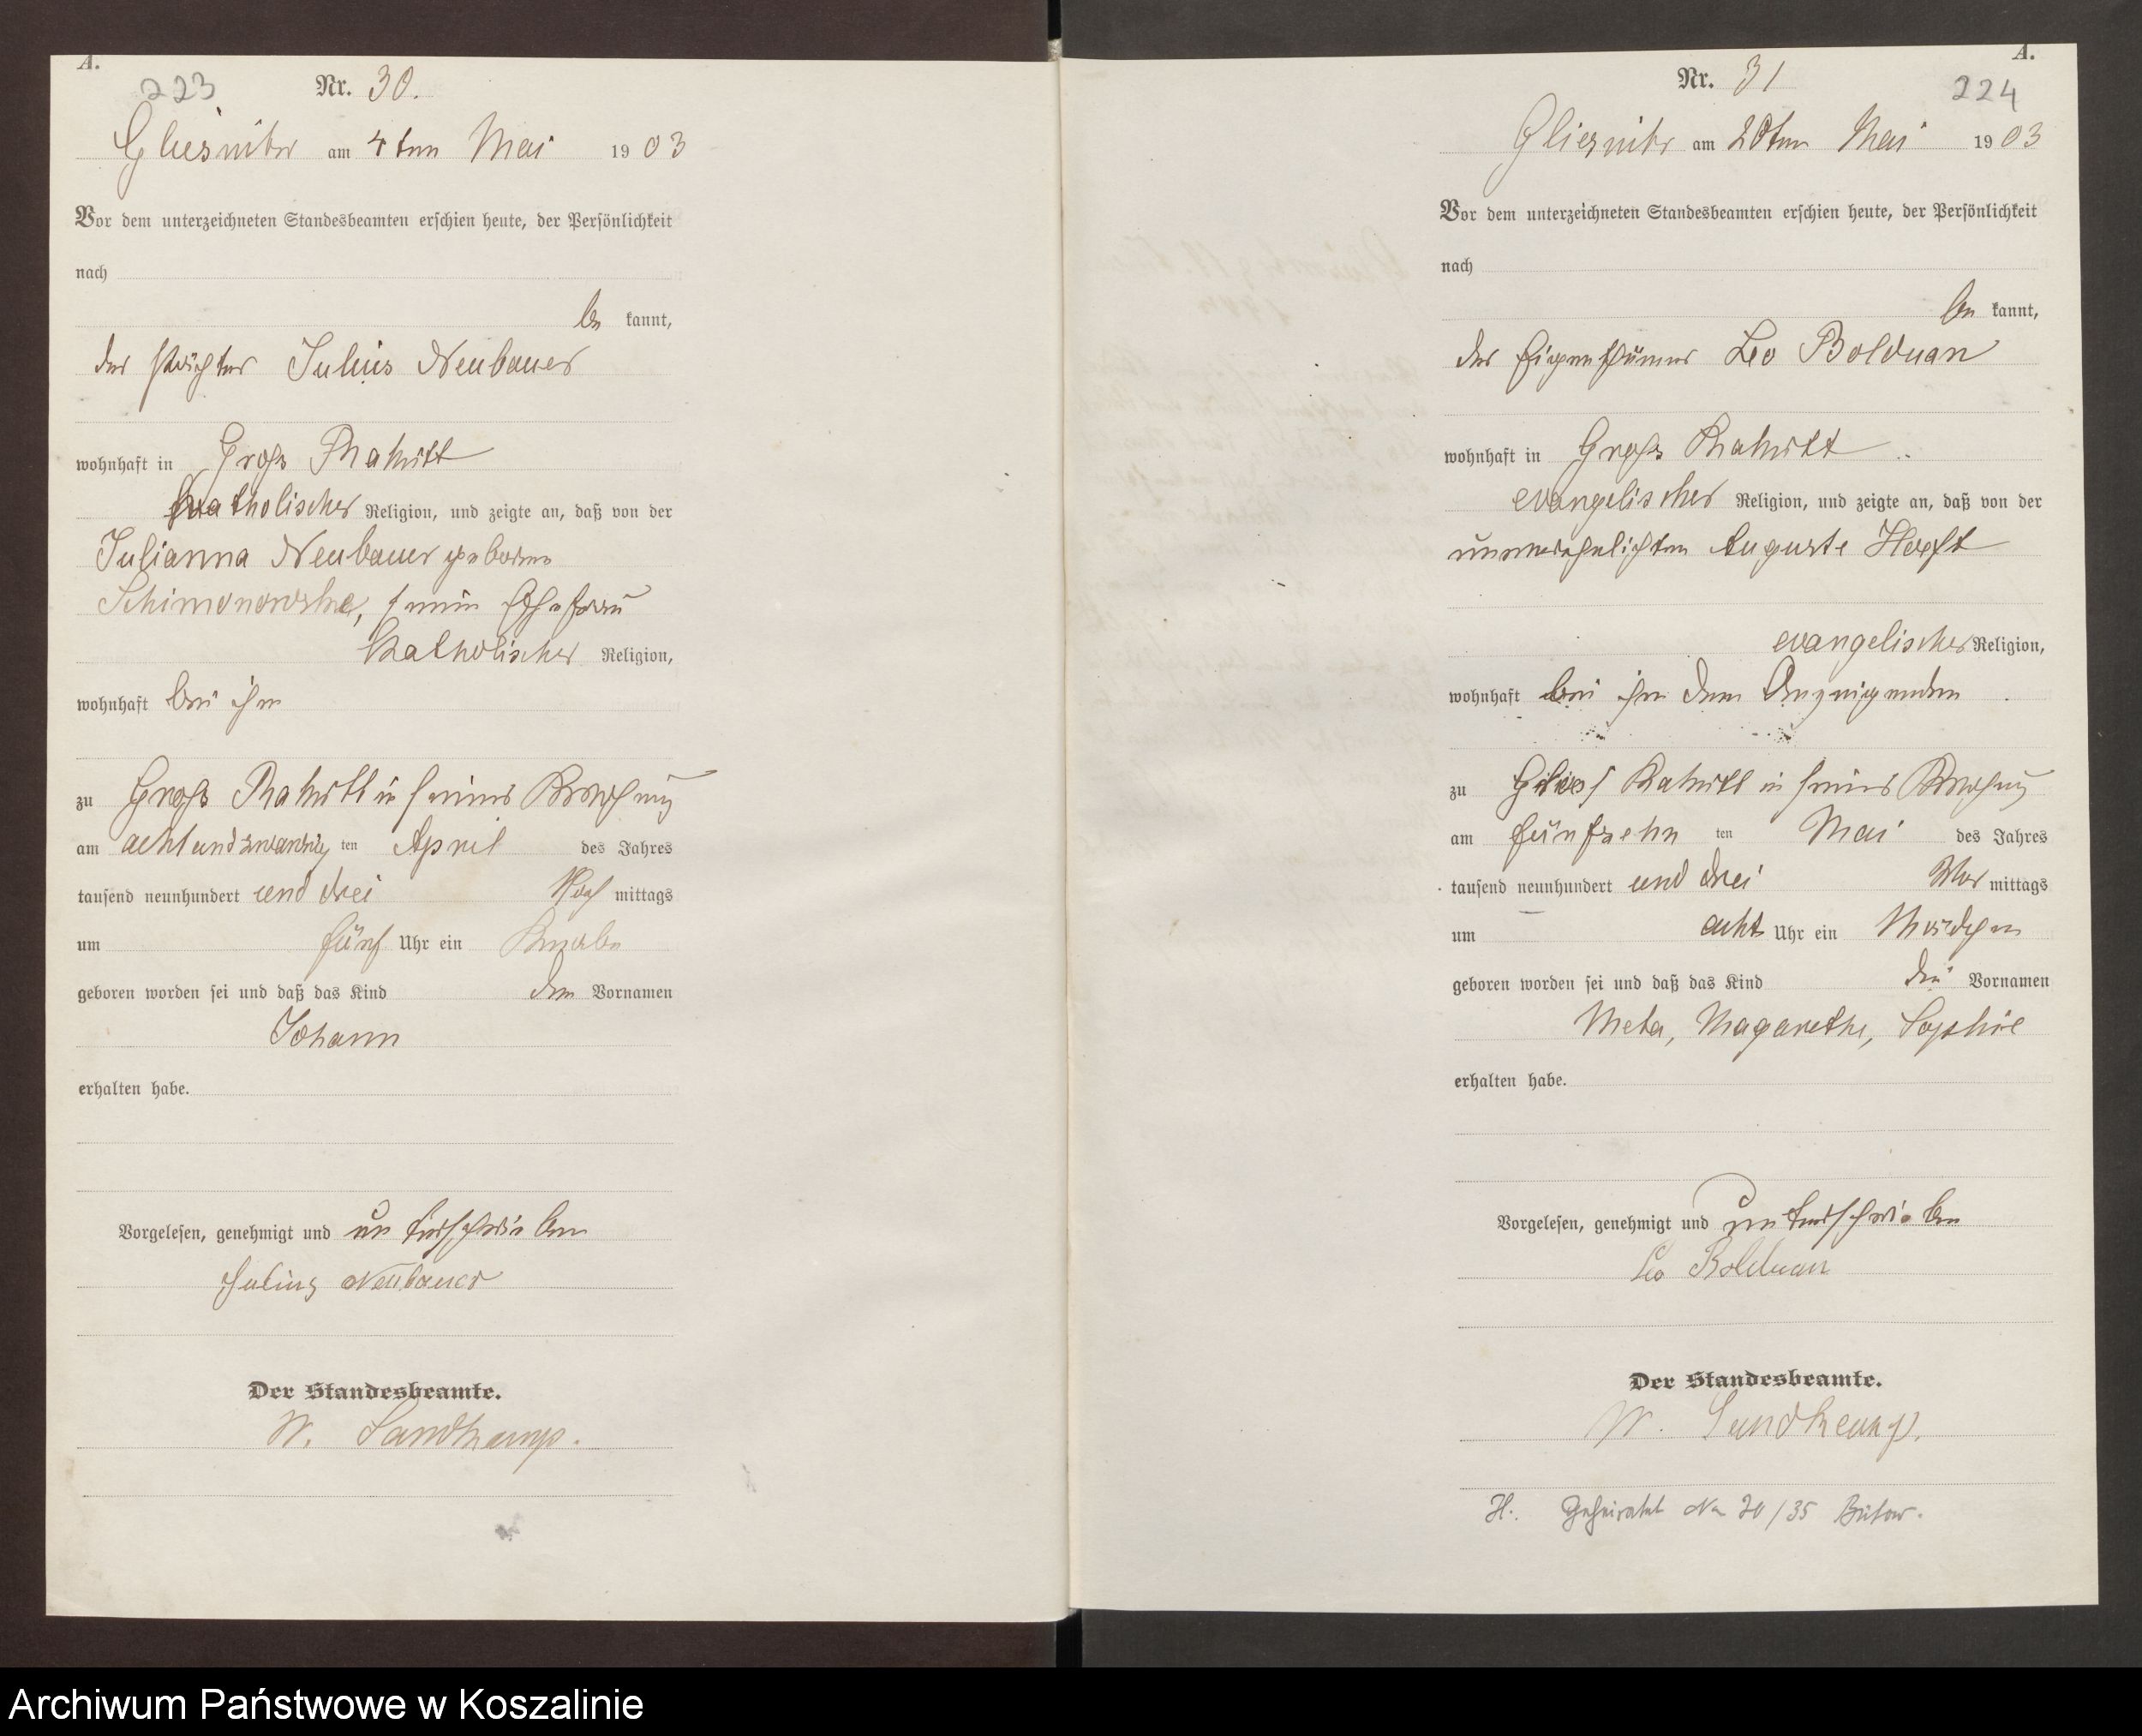 A.
223
Nr. 30.
Gliesnitz am 4ten Mai 1903
Vor dem unterzeichneten Standesbeamten erschien heute, der Persönlichkeit
nach
be kannt,
der Pächter Julius Neubauer
wohnhaft in Gross Rakitt
katholischer Religion, und zeigte an, daß von der
Julianna Neubauer geborne
seine Ehefrau
katholischer Religion,
wohnhaft bei ihm
zu Gross Rakitt in seiner Wohnung
am achtundzwanzig ten April des Jahres
tausend neunhundert und drei Nach mittags
um fünf Uhr ein Knabe
geboren worden sei und daß das Kind den Vornamen
Johann
erhalten habe.
Vorgelesen, genehmigt und unterschrieben
Julius Neubauer
Der Standesbeamte.
W. Sandkamp.
A.
Nr. 31
224
Gliesnitz am 20ten Mai 1903
Vor dem unterzeichneten Standesbeamten erschien heute, der Persönlichkeit
nach
be kannt,
der Eigenthümer Leo Bolduan
wohnhaft in Gross Rakitt
evangelischer Religion, und zeigte an, daß von der
unverehelichten Auguste
evangelischer Religion,
wohnhaft bei ihm dem Anzeigenden
zu Gross Rakitt in seiner Wohnung
am fünfzehn ten Mai des Jahres
tausend neunhundert und drei Vor mittags
um acht Uhr ein Mädchen
geboren worden sei und daß das Kind die Vornamen
Meta, Magarethe, Sophie
erhalten habe.
Vorgelesen, genehmigt und unterschrieben
Leo Bolduan
Der Standesbeamte.
W. Sandkamp.
H. Geheiratet No 20/35 Bütow.
Archiwum Państwowe w Koszalinie